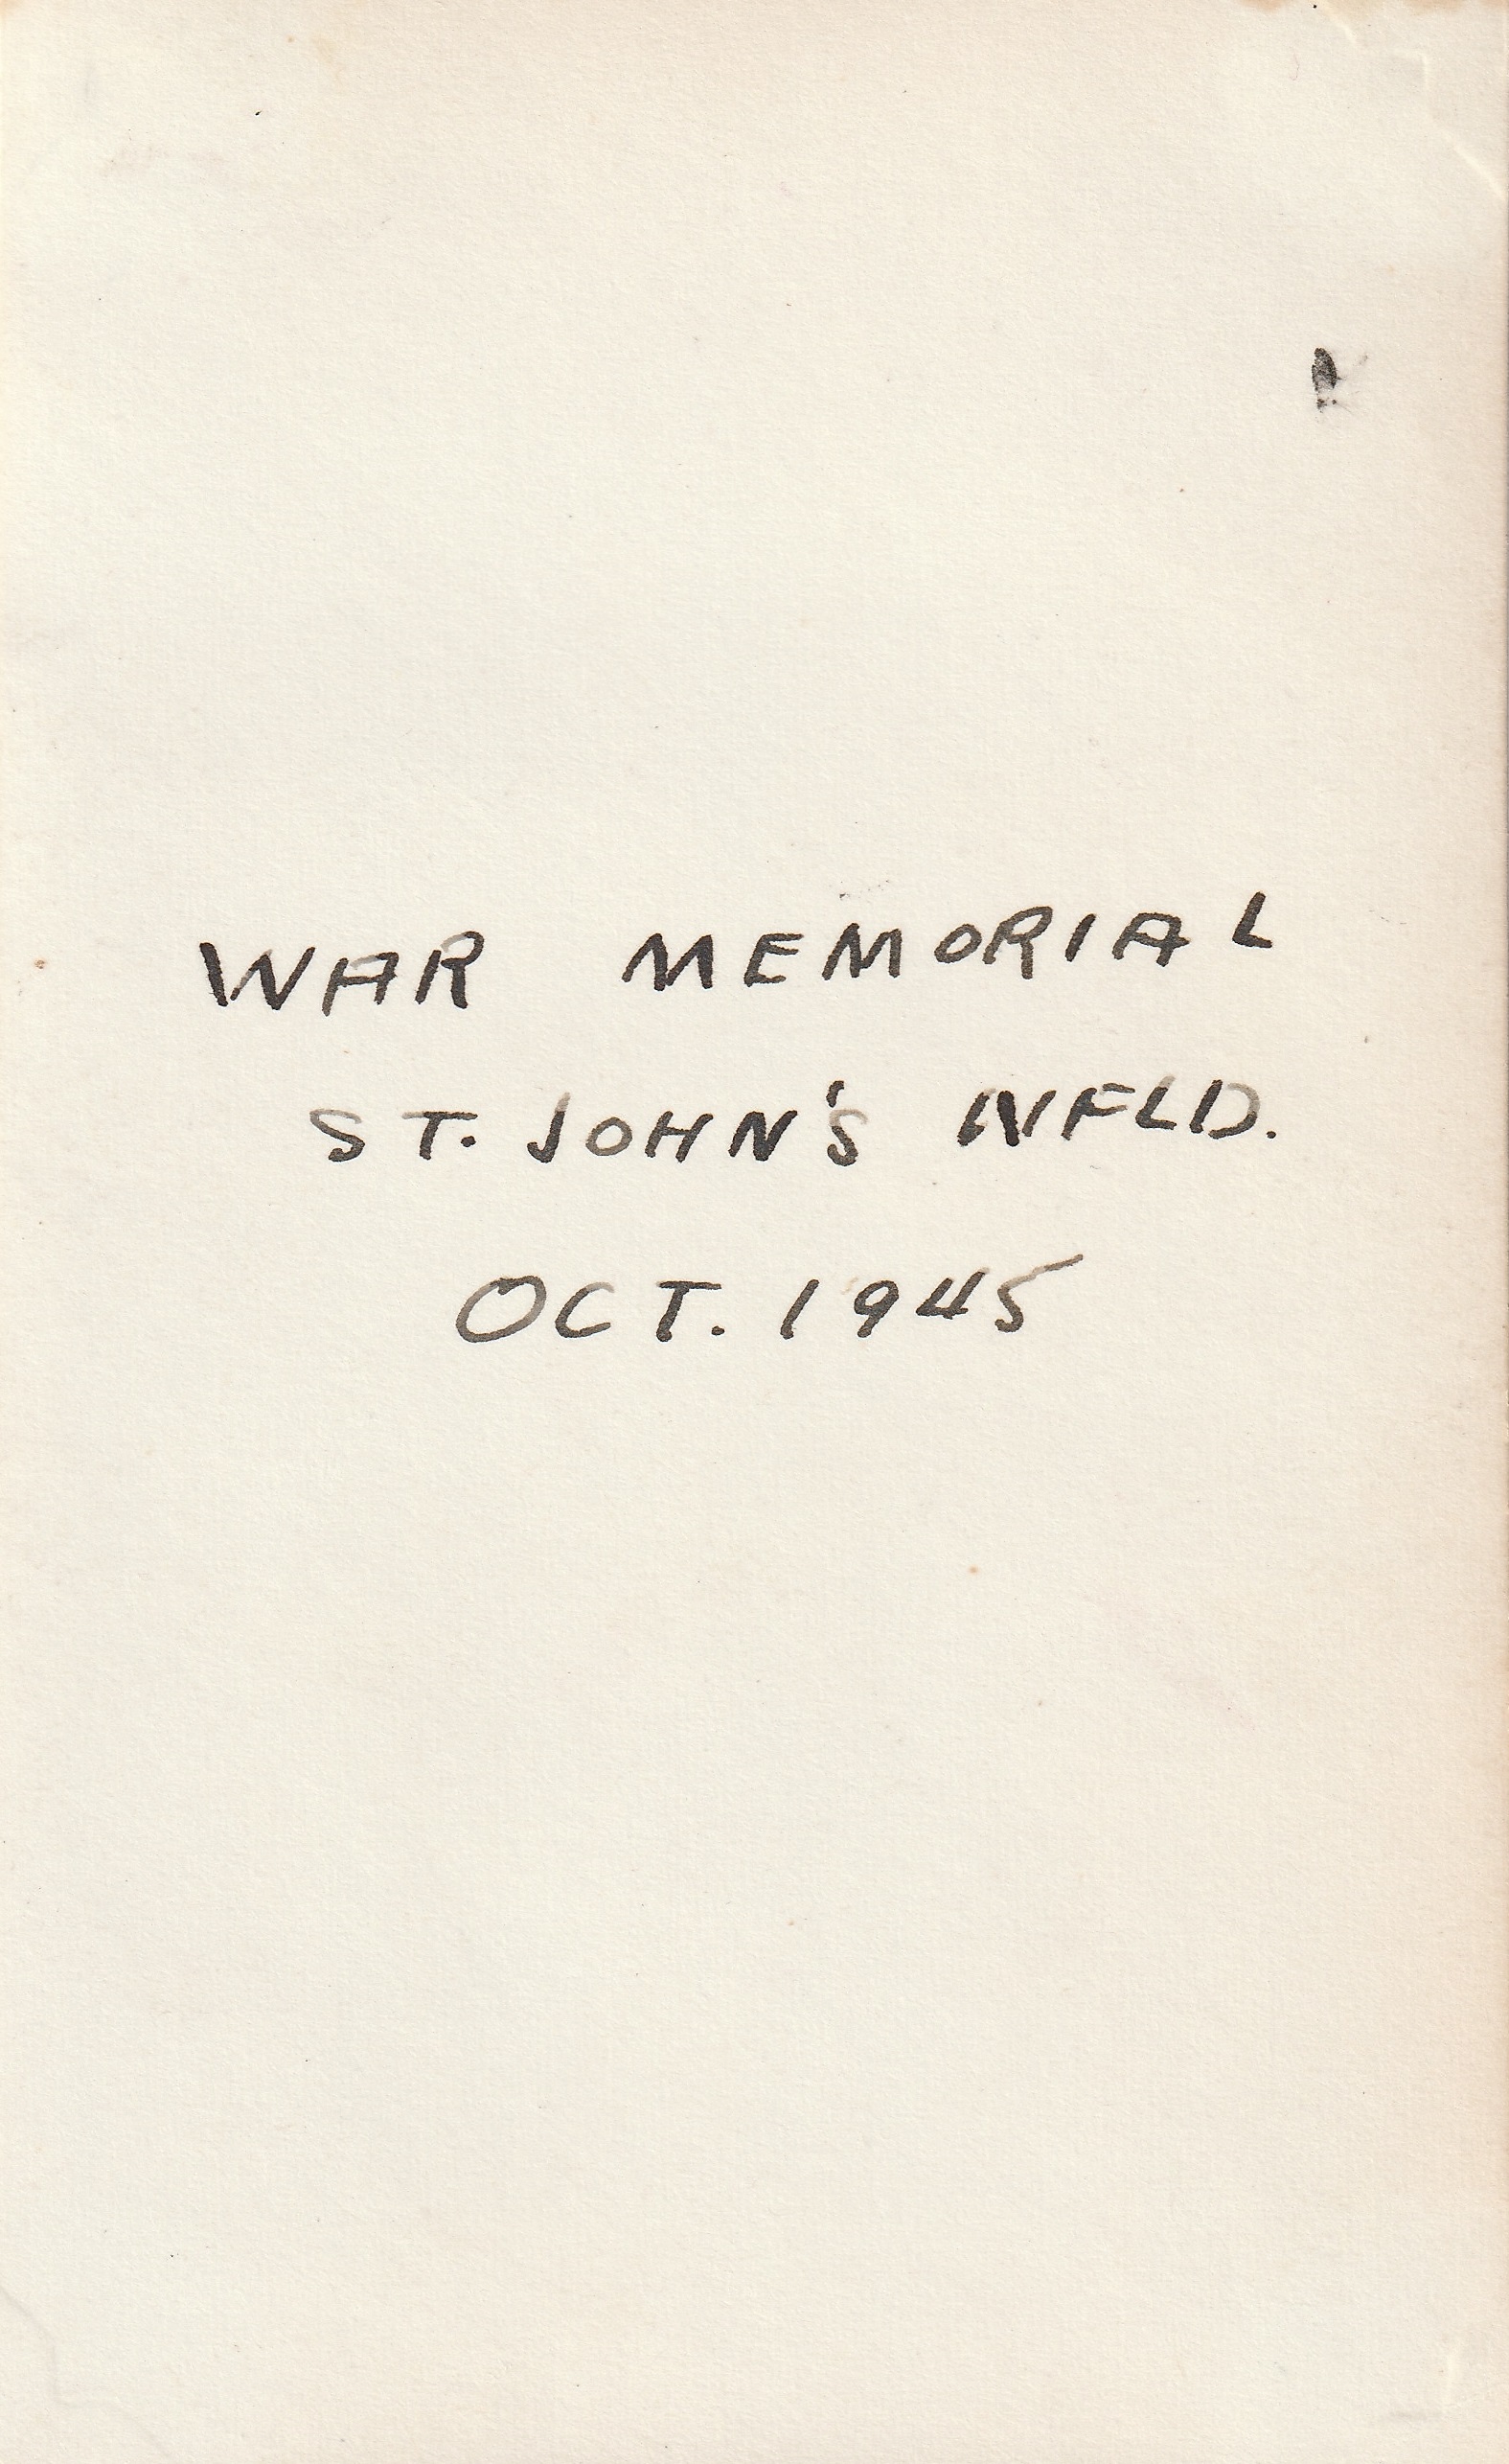 WAR MEMORIAL
ST. JOHN'S NFLD.
OCT. 1945